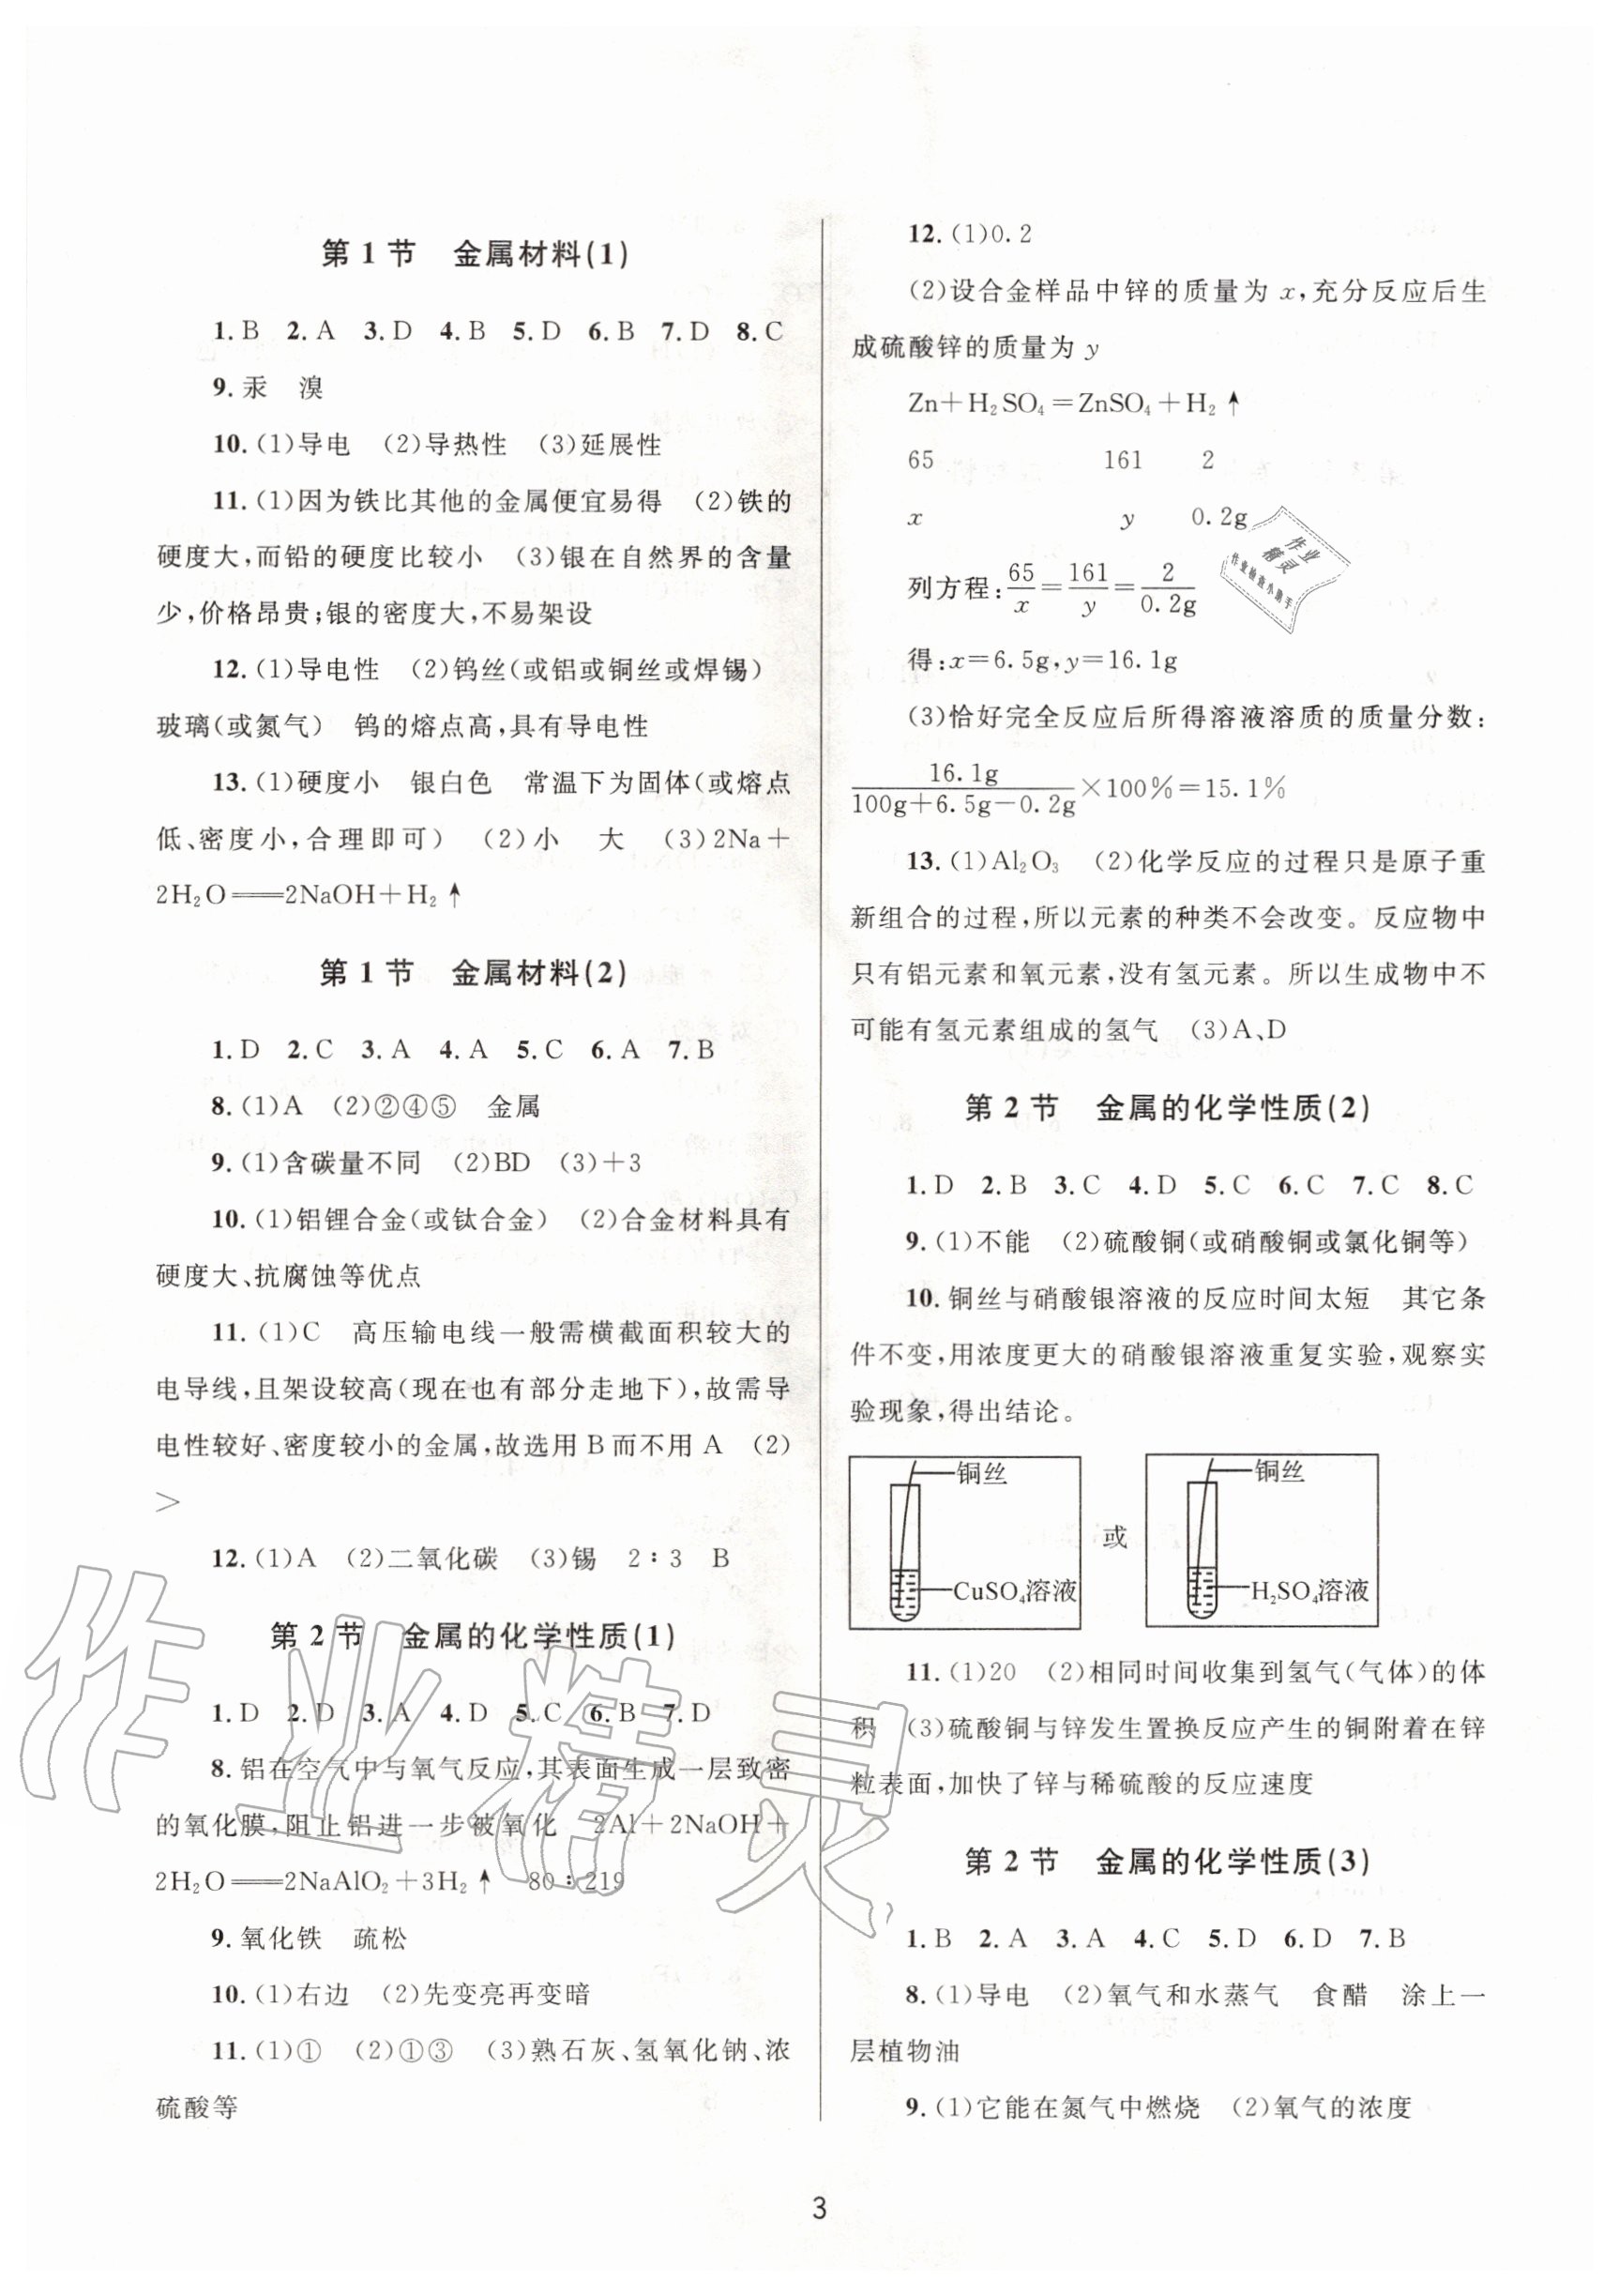 第1节 金属材料(1)
1. B 2. A 3. D 4. B 5. D 6. B 7. D 8. C
9. 汞 溴
10. (1)导电 (2)导热性 (3)延展性
11. (1)因为铁比其他的金属便宜易得 (2)铁的
硬度大,而铅的硬度比较小 (3)银在自然界的含量
少,价格昂贵;银的密度大,不易架设
12. (1)导电性 (2)钨丝(或铝或铜丝或焊锡)
玻璃(或氮气) 钨的熔点高,具有导电性
13. (1)硬度小 银白色 常温下为固体(或熔点
低、密度小,合理即可) (2)小 大 (3)2Na+
2H₂O══2NaOH+H₂↑
第1节 金属材料(2)
1. D 2. C 3. A 4. A 5. C 6. A 7. B
8. (1)A (2)②④⑤ 金属
9. (1)含碳量不同 (2)BD (3)+3
10. (1)铝锂合金(或钛合金) (2)合金材料具有
硬度大、抗腐蚀等优点
11. (1)C 高压输电线一般需横截面积较大的
电导线,且架设较高(现在也有部分走地下),故需导
电性较好、密度较小的金属,故选用B而不用A (2)
>
12. (1)A (2)二氧化碳 (3)锡 2∶3 B
第2节 金属的化学性质(1)
1. D 2. D 3. A 4. D 5. C 6. B 7. D
8. 铝在空气中与氧气反应,其表面生成一层致密
的氧化膜,阻止铝进一步被氧化 2Al+2NaOH+
2H₂O══2NaAlO₂+3H₂↑ 80∶219
9. 氧化铁 疏松
10. (1)右边 (2)先变亮再变暗
11. (1)① (2)①③ (3)熟石灰、氢氧化钠、浓
硫酸等
12. (1)0.2
(2)设合金样品中锌的质量为x,充分反应后生
成硫酸锌的质量为y
Zn+H₂SO₄=ZnSO₄+H₂↑
65 161 2
x y 0.2g
列方程:65/x=161/y=2/0.2g
得:x=6.5g,y=16.1g
(3)恰好完全反应后所得溶液溶质的质量分数:
16.1g/(100g+6.5g-0.2g)×100%=15.1%
13. (1)Al₂O₃ (2)化学反应的过程只是原子重
新组合的过程,所以元素的种类不会改变。反应物中
只有铝元素和氧元素,没有氢元素。所以生成物中不
可能有氢元素组成的氢气 (3)A、D
第2节 金属的化学性质(2)
1. D 2. B 3. C 4. D 5. C 6. C 7. C 8. C
9. (1)不能 (2)硫酸铜(或硝酸铜或氯化铜等)
10. 铜丝与硝酸银溶液的反应时间太短 其它条
件不变,用浓度更大的硝酸银溶液重复实验,观察实
验现象,得出结论。
铜丝
CuSO₄溶液
或
铜丝
H₂SO₄溶液
11. (1)20 (2)相同时间收集到氢气(气体)的体
积 (3)硫酸铜与锌发生置换反应产生的铜附着在锌
粒表面,加快了锌与稀硫酸的反应速度
第2节 金属的化学性质(3)
1. B 2. A 3. A 4. C 5. D 6. D 7. B
8. (1)导电 (2)氧气和水蒸气 食醋 涂上一
层植物油
9. (1)它能在氮气中燃烧 (2)氧气的浓度
3
作业精灵
作业
精灵
作业检查小助手